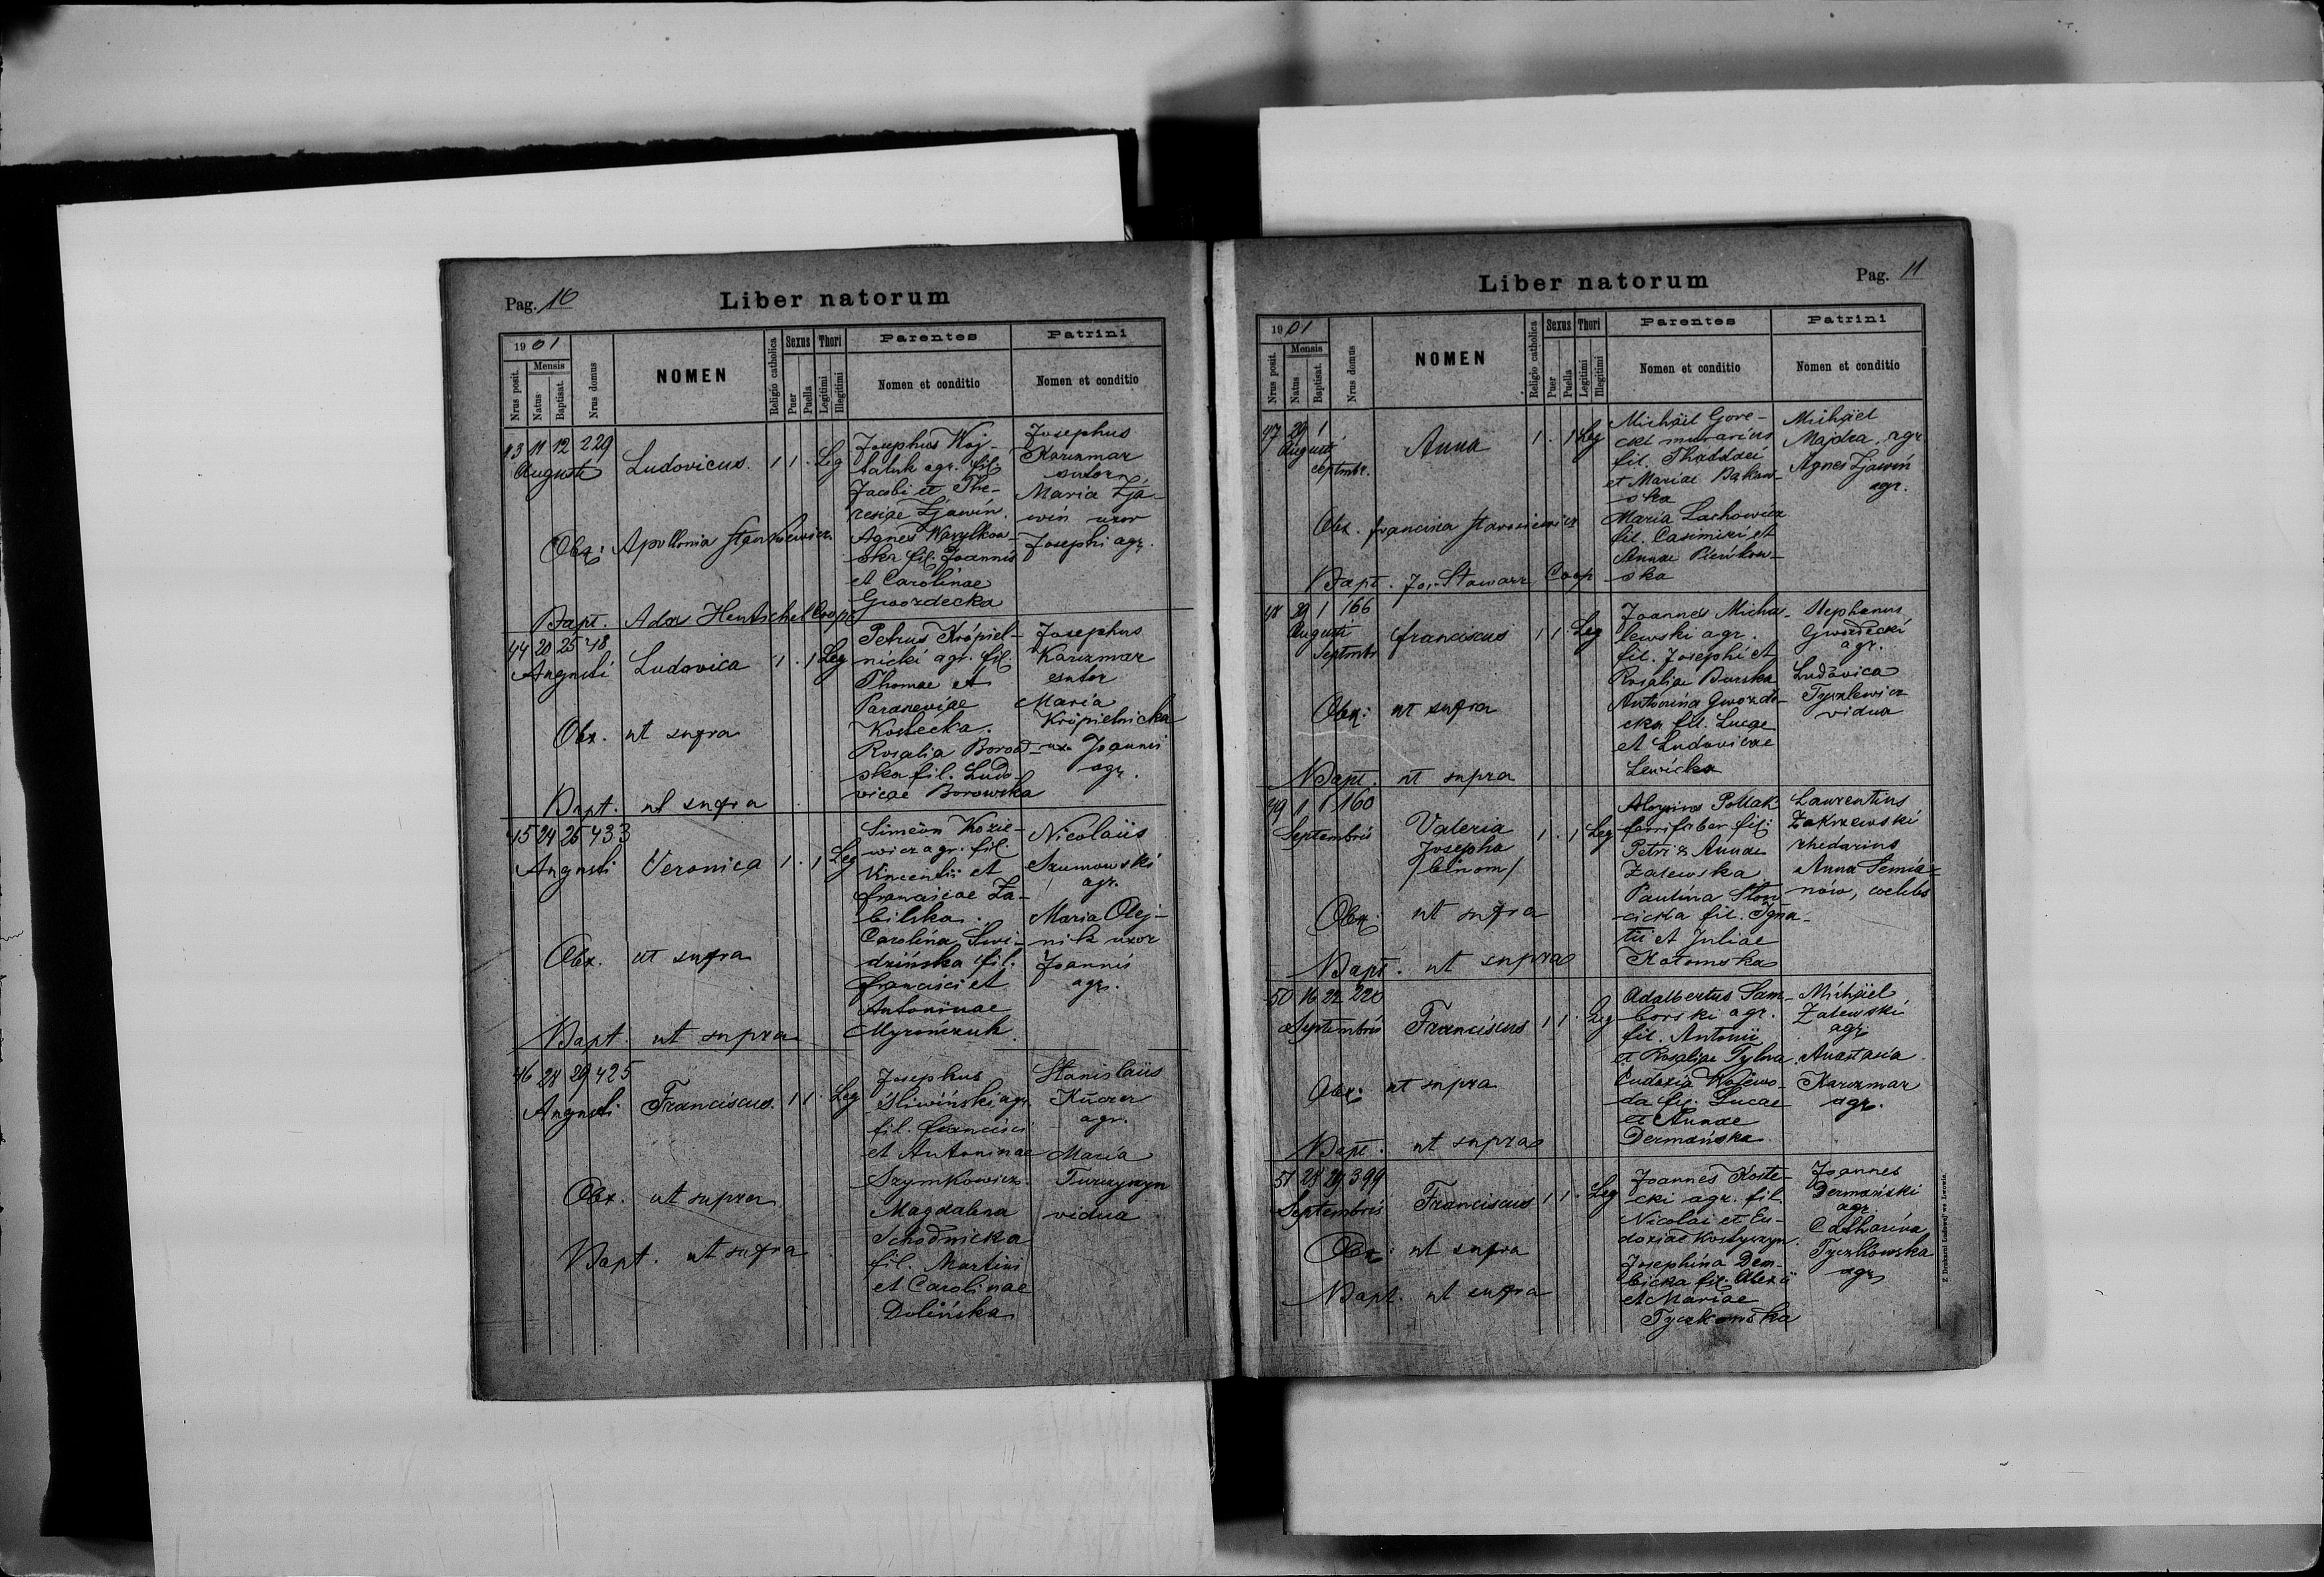 Pag. 10
Liber natorum
1901
Nrus posit.
Mensis
Natus
Baptisat.
Nrus domus
NOMEN
Religio catholica
Sexus
Puer
Puella
Thori
Legitimi
Illegitimi
Parentes
Nomen et conditio
Patrini
Nomen et conditio
43 11 12 229
Augusti
Ludovicus
1 1 . Leg
Josephus Woj-
taluk agr. fil.
Jacobi et The-
resiae Zjawin.
Agnes Wasylkow-
ska fil. Joannis
et Carolinae
Gwozdecka
Josephus
Karczmar
sutor
Maria Zja-
win uxor
Josephi agr.
Obx: Apollonia Stankiewicz
Bapt. Ada Hentschel Coop
44 20 25 48
Augusti
Ludovica
1 . 1 Leg
Petrus Krópiel-
nicki agr. fil.
Thomae et
Parasceviae
Kostecka.
Rosalia Borow-
ska fil. Ludo-
vicae Borowska
Josephus
Karczmar
sutor
Maria
Krópielnicka
ux. Joannis
agr.
Obx. ut supra
Bapt. ut supra
45 24 25 433
Augusti
Veronica
1 . 1 Leg
Simeon Kozie-
wicz agr. fil.
Vincentii et
Franciscae Za-
bilska.
Carolina Swi-
dzińska fil.
Francisci et
Antoninae
Myrończuk
Nicolaüs
Szumowski
agr.
Maria Olej-
nik uxor
Joannis
agr.
Obx. ut supra
Bapt. ut supra
46 28 29 425
Augusti
Franciscus
1 1 . Leg
Josephus
Śliwiński agr.
fil. Francisci
et Antoninae
Szymkowicz.
Magdalena
Schodnicka
fil. Martini
et Carolinae
Dolińska
Stanislaüs
Kuczer
agr.
Maria
Turczyn
vidua
Obx. ut supra
Bapt. ut supra
Liber natorum
Pag. 11
1901
Nrus posit.
Mensis
Natus
Baptisat.
Nrus domus
NOMEN
Religio catholica
Sexus
Puer
Puella
Thori
Legitimi
Illegitimi
Parentes
Nomen et conditio
Patrini
Nomen et conditio
47 29 1
Augusti
Septmbr.
Anna
1 . 1 Leg
Michäel Gore-
cki murarius
fil. Thaddaei
et Mariae Bakow-
ska
Maria Lachowicz
fil. Casimiri et
Annae Pieńkow-
ska
Michäel
Majdra, agr
Agnes Zjawin
agr.
Obx. Francisca Staroniewicz
Bapt. Jos. Stawarz Coop
48 29 1 166
Augusti
Septmbr
Franciscus
1 1 . Leg
Joannes Micha-
lewski agr.
fil. Josephi et
Rosaliae Burska
Antonina Gwozde-
cka fil. Lucae
et Ludovicae
Lewicka
Stephanus
Gwozdecki
agr.
Ludovica
Tyszlewicz
vidua
Obx: ut supra
Bapt. ut supra
49 1 1 160
Septembris
Valeria
Josepha
/binom/
1 . 1 Leg
Aloysius Pollak
ferrifaber fil:
Petri & Annae
Zalewska
Paulina Słow-
cicka fil. Igna-
tii et Juliae
Kotomska
Laurentius
Zakrzewski
rhedarius
Anna Semia-
nów, coelebs
Obx: ut supra
Bapt. ut supra
50 16 22 220
Septembris
Franciscus
1 1 . Leg
Adalbertus Sam-
borski agr.
fil. Antonii
et Rosaliae Tylna.
Eudoxia Wojewo-
da fil. Lucae
et Annae
Dermańska
Michäel
Zalewski
agr.
Anastasia
Karczmar
agr.
Obx: ut supra
Bapt. ut supra
51 28 29 399
Septembris
Franciscus
1 1 . Leg
Joannes Koste-
cki agr. fil.
Nicolai et Eu-
doxiae Kostyszyn.
Josephina Dem-
bicka fil. Alexii
et Mariae
Tyczkowska
Joannes
Dermański
agr.
Catharina
Tyczkowska
agr.
Obx: ut supra
Bapt. ut supra
Z Drukarni Ludowej we Lwowie.